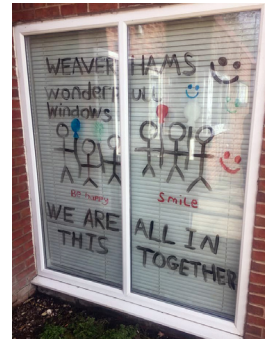 WEAVER HAMS
wonderful
windows
Be happy
smile
WE ARE ALL IN
THIS TOGETHER